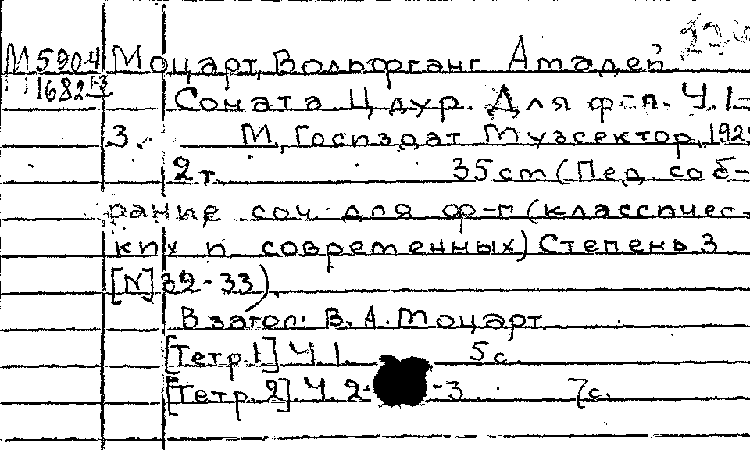 М5904 Моцарт, Вольфганг Амадей
1682
Соната Ц дур. Для ф-п. Ч. 1-
3. М, Госиздат Музсектор, 192
2 т. 35 cm (Пед. соб-
рание соч. для ф-п (классичес-
ких и современных) Степень 3
[N] 32-33).
В загол: В. А. Моцарт
[Тетр. 1] Ч. 1. 5 с.
[Тетр. 2]. Ч. 2- -3 7 с.